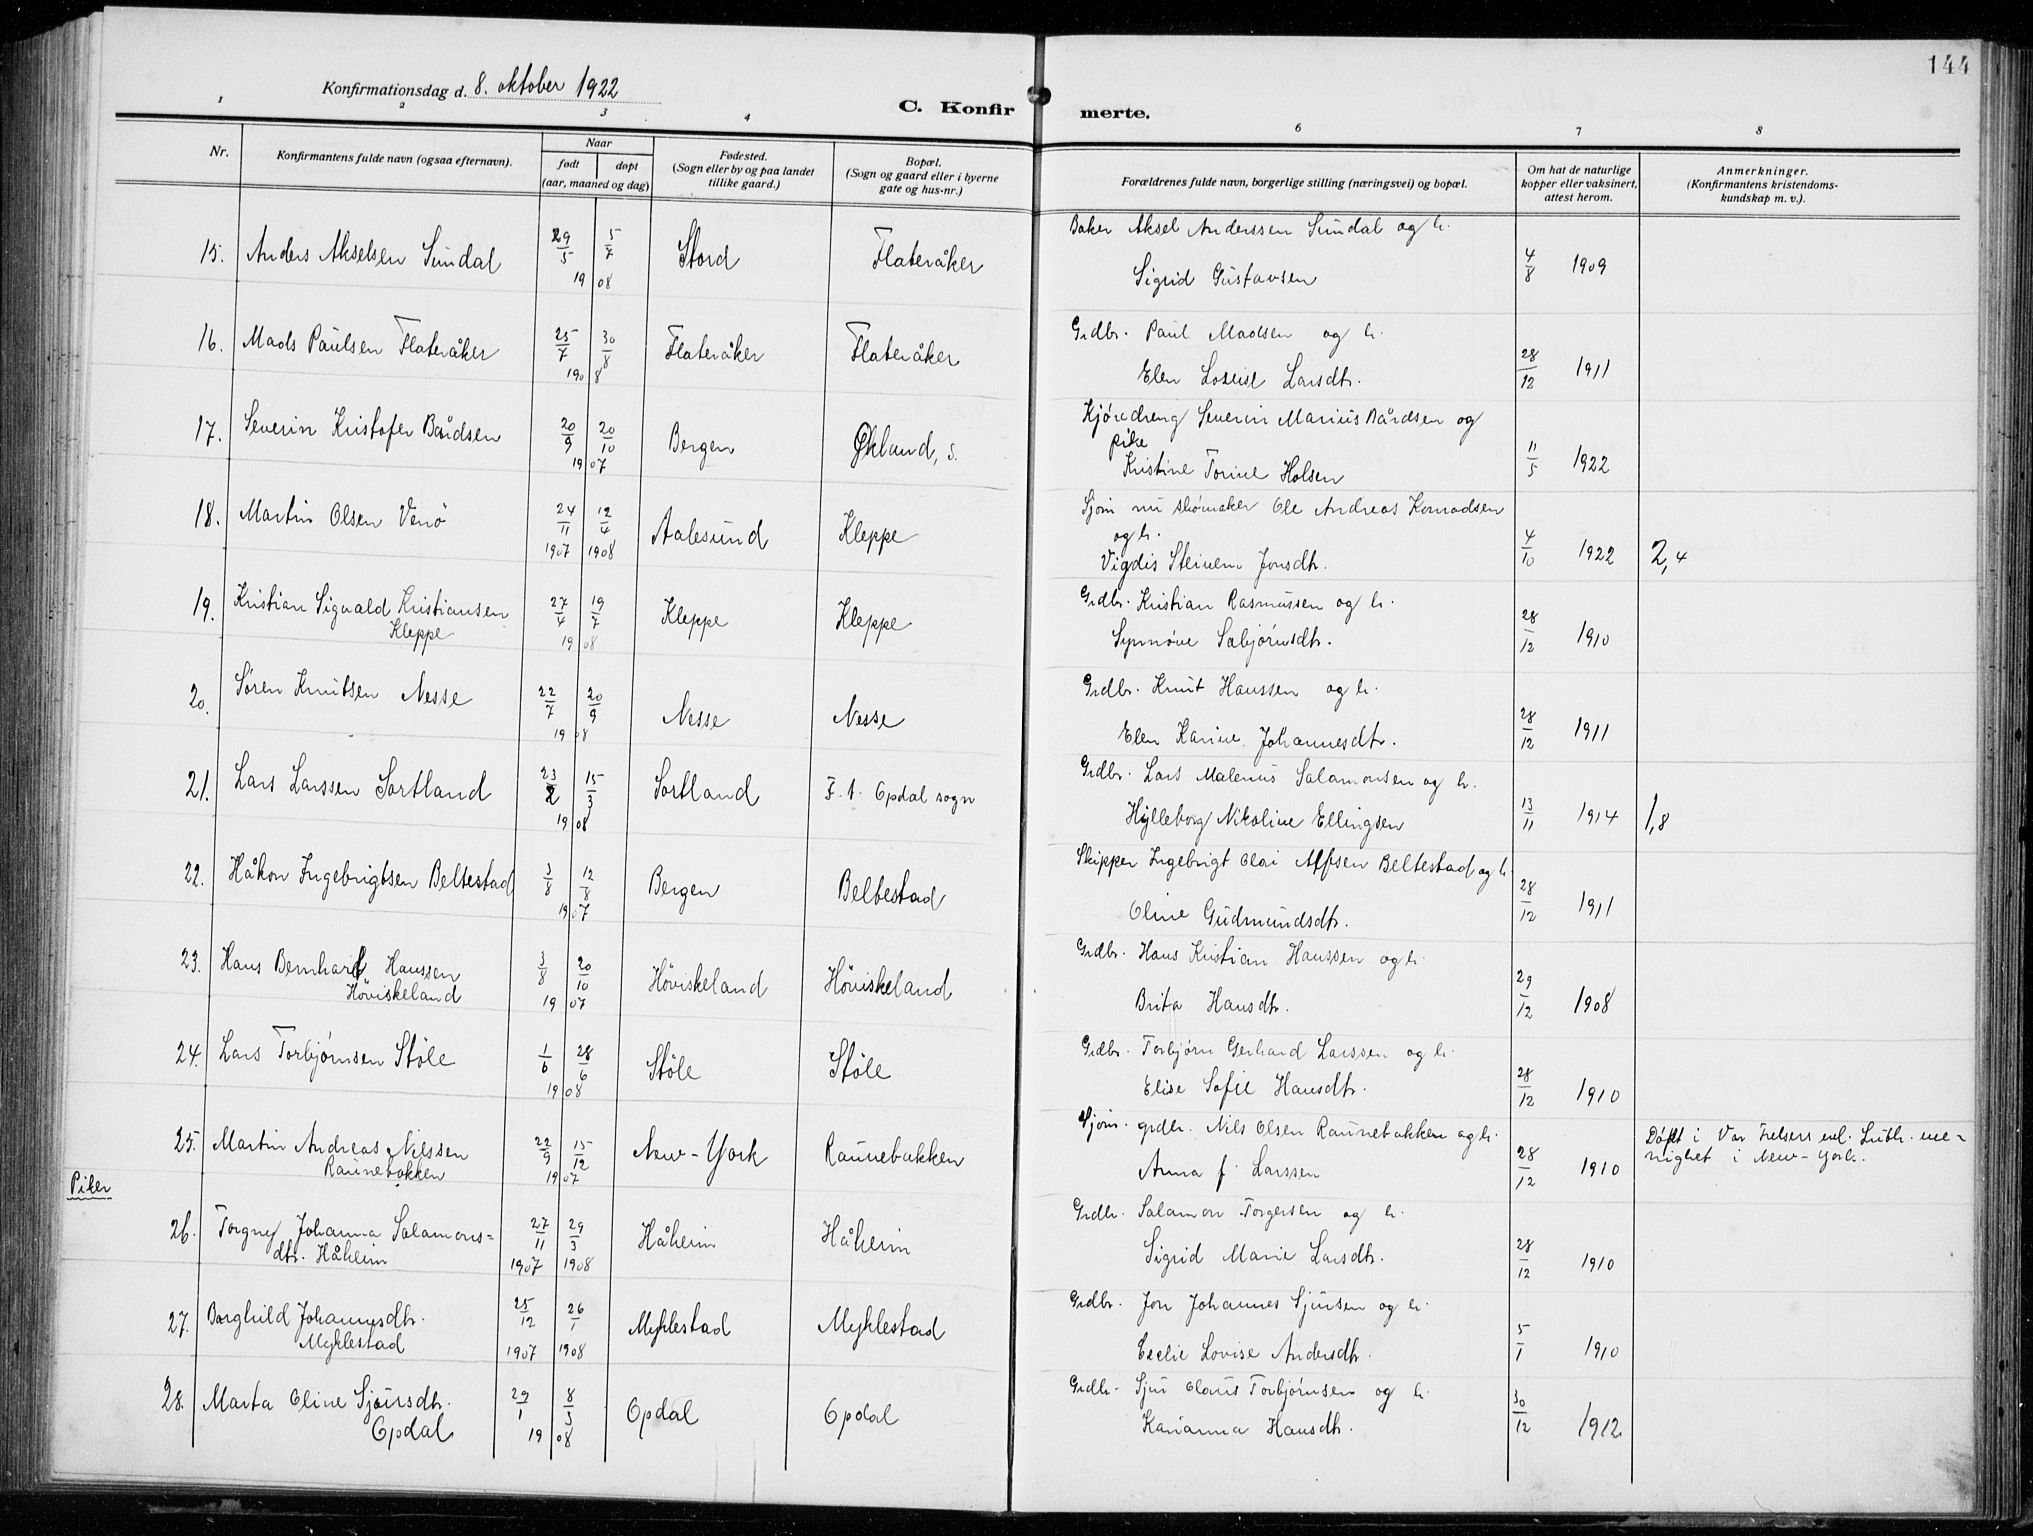 144
Konfirmationsdag d. 8. oktober 1922
C. Konfirmerte.
1 2 3 4 6 7 8
Nr.
Konfirmantens fulde navn (ogsaa efternavn).
Naar
født døpt
(aar, maaned og dag)
Fødested.
(Sogn eller by og paa landet
tillike gaard.)
Bopæl.
(Sogn og gaard eller i byerne
gate og hus-nr.)
Forældrenes fulde navn, borgerlige stilling (næringsvei) og bopæl.
Om hat de naturlige
kopper eller vaksinert,
attest herom.
Anmerkninger.
(Konfirmantens kristendoms-
kundskap m. v.).
Baker Aksel Anderssen Sundal og h.
15. Anders Akselsen Sundal 29/5 5/7 1908 Stord Flateråker
Sigrid Gustavsen 4/8 1909
Grdbr. Paul Madsen og h.
16. Mads Paulsen Flateråker 25/7 30/8 1908 Flateråker Flateråker
Elen Lovise Larsdtr. 28/12 1911
Kjøredreng Severin Marius Bårdsen og
17. Severin Kristofer Bårdsen 20/9 20/10 1907 Bergen Økland, s.
pike
Kristine Torine Holsen 11/5 1922
Sjøm. nu skomaker Ole Andreas Konradsen
18. Martin Olsen Venö 24/11 1907 12/4 1908 Aalesund Kleppe
og h.
Vigdis Steinem Jonsdtr. 4/10 1922 2,4
Grdbr. Kristian Rasmussen og h.
19. Kristian Sigvald Kristiansen
Kleppe 27/4 19/7 1908 Kleppe Kleppe
Synnöve Sæbjörnsdtr. 28/12 1910
Grdbr. Knut Hanssen og h.
20. Sören Knutsen Nesse 22/7 20/9 1908 Nesse Nesse
Elen Karine Johannesdtr. 28/12 1911
Grdbr. Lars Malenius Salamonsen og h.
21. Lars Larssen Sortland 23/2 15/3 1908 Sortland F. t. Opdal sogn
Hylleborg Nikoline Ellingsen 13/11 1914 1,8
Skipper Ingebrigt Olai Alfsen Beltestad og h.
22. Håkon Ingebrigtsen Beltestad 3/8 12/8 1907 Bergen Beltestad
Oline Gudmundsdtr. 28/12 1911
Grdbr. Hans Kristian Hanssen og h.
23. Hans Bernhard Hanssen
Höviskeland 3/8 20/10 1907 Höviskeland Höviskeland
Brita Hansdtr. 29/12 1908
Grdbr. Torbjörn Gerhard Larssen og h.
24. Lars Torbjörnsen Stöle 1/6 28/6 1908 Stöle Stöle
Elise Sofie Hansdtr. 28/12 1910
Sjöm. grdbr. Nils Olsen Raunebakken og h.
25. Martin Andreas Nilssen
Raunebakken 22/9 15/12 1907 New-York Raunebakken
Anna f. Larssen 28/12 1910
Döpt i Vor Frelsers evl. Luth. me-
nighet i New-York.
Piker
Grdbr. Salamon Torgersen og h.
26. Torgney Johanna Salamons-
dtr. Håheim 27/11 1907 29/3 1908 Håheim Håheim
Sigrid Marie Larsdtr. 28/12 1910
Grdbr. Jon Johannes Sjursen og h.
27. Borghild Johannesdtr.
Myklestad 25/12 1907 26/1 1908 Myklestad Myklestad
Cecelie Lovise Andersdtr. 5/1 1910
Grdbr. Sjur Olaus Torbjörnsen og h.
28. Marta Oline Sjursdtr.
Opdal 29/1 8/3 1908 Opdal Opdal
Karianna Hansdtr. 30/12 1912